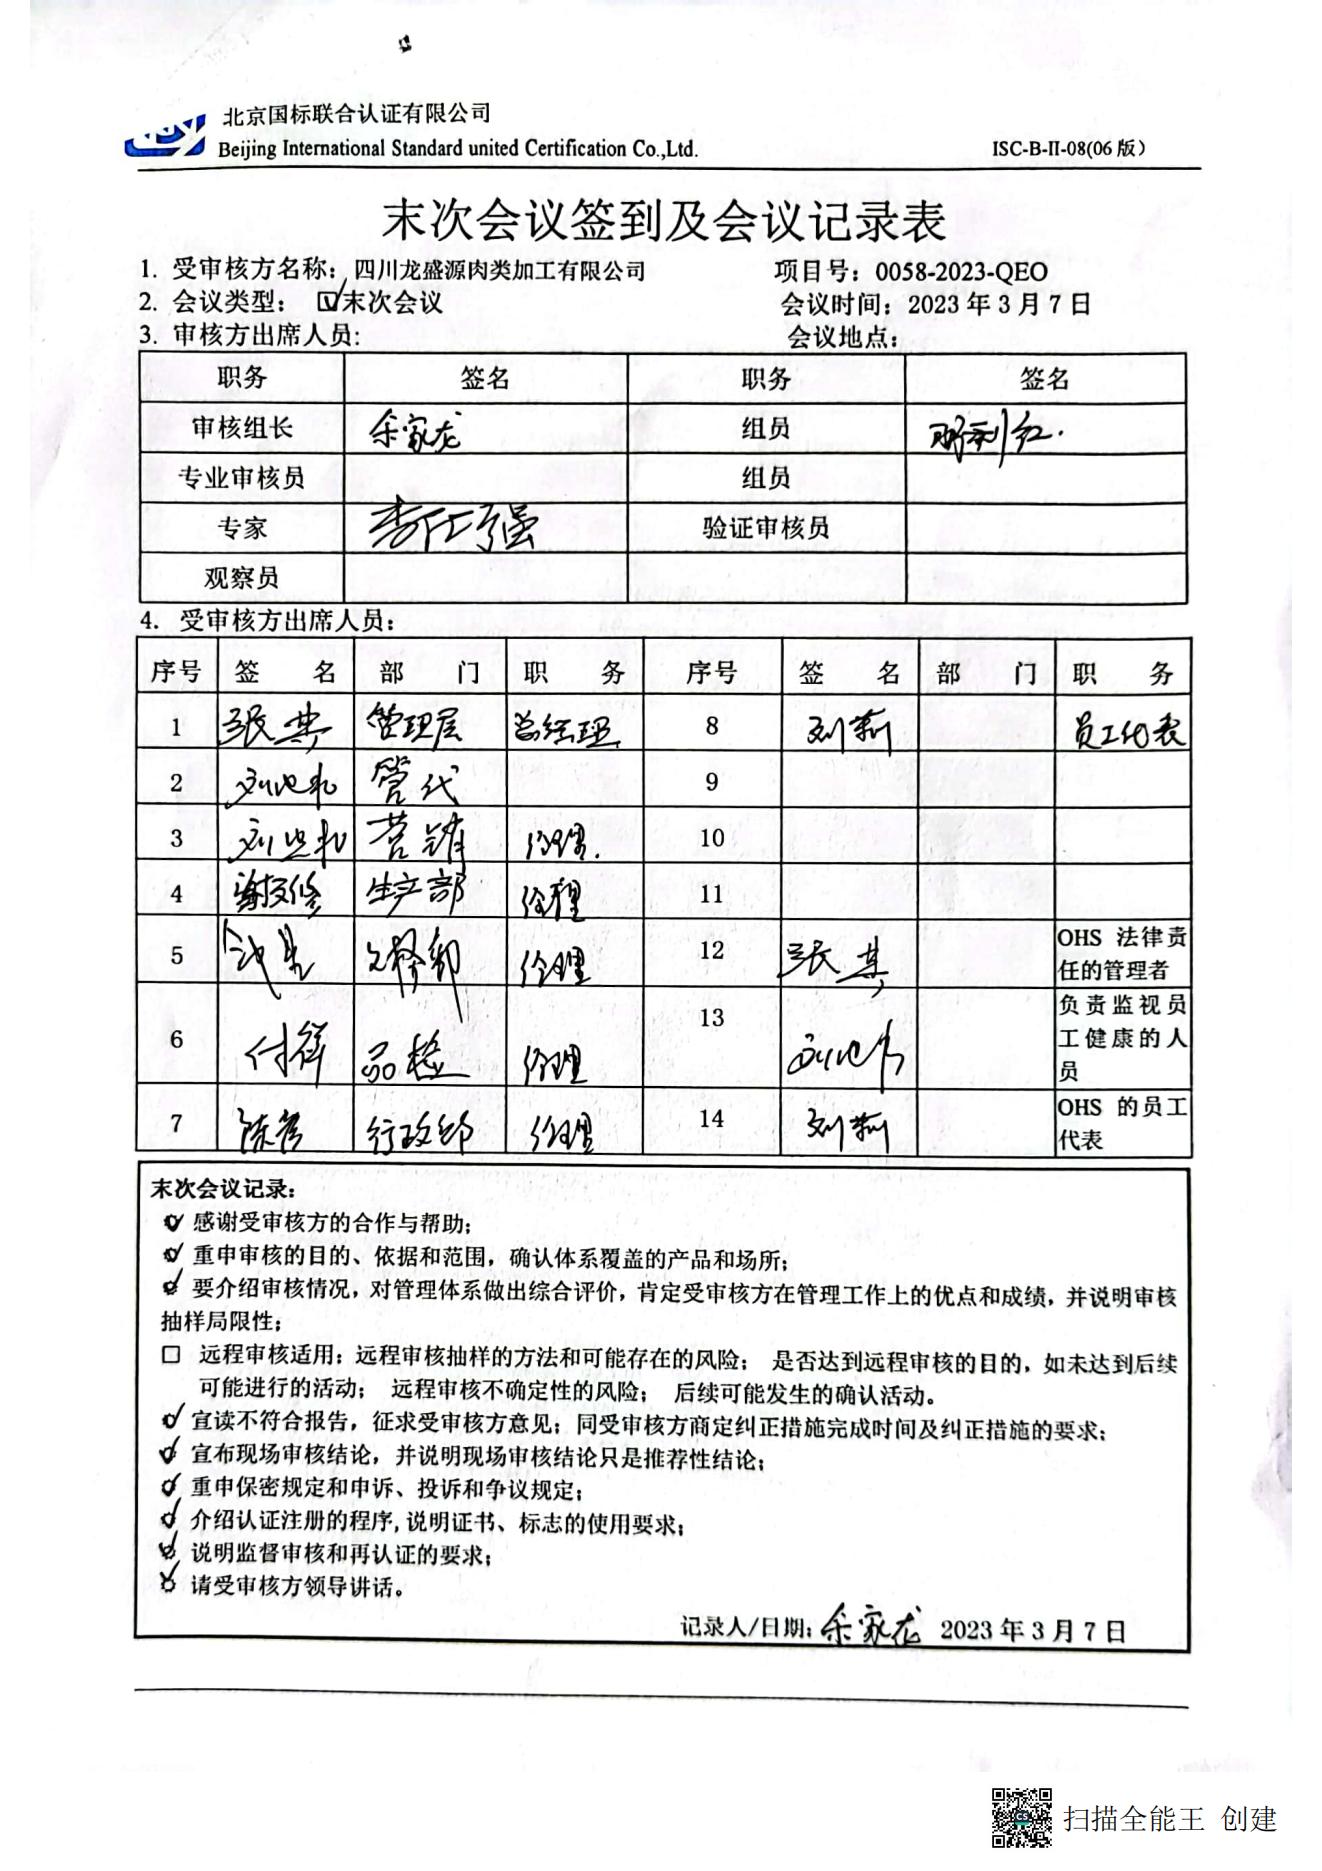 北京国标联合认证有限公司
Beijing International Standard united Certification Co.,Ltd.
ISC-B-II-08(06 版)
末次会议签到及会议记录表
1. 受审核方名称：四川龙盛源肉类加工有限公司 项目号：0058-2023-QEO
2. 会议类型： ☑末次会议 会议时间：2023 年 3 月 7 日
3. 审核方出席人员: 会议地点：
职务 签名 职务 签名
审核组长 余家龙 组员
专业审核员 组员
专家 验证审核员
观察员
4. 受审核方出席人员：
序号 签 名 部 门 职 务 序号 签 名 部 门 职 务
1 管理层 总经理 8 刘莉 员工代表
2 管代 9
3 营销 经理. 10
4 生产部 经理 11
5 经理 12 OHS 法律责
任的管理者
6 品检 经理 13 负责监视员
工健康的人
员
7 行政部 经理 14 刘莉 OHS 的员工
代表
末次会议记录：
☑ 感谢受审核方的合作与帮助；
☑ 重申审核的目的、依据和范围，确认体系覆盖的产品和场所；
☑ 要介绍审核情况，对管理体系做出综合评价，肯定受审核方在管理工作上的优点和成绩，并说明审核
抽样局限性；
□ 远程审核适用：远程审核抽样的方法和可能存在的风险； 是否达到远程审核的目的，如未达到后续
可能进行的活动； 远程审核不确定性的风险； 后续可能发生的确认活动。
☑ 宣读不符合报告，征求受审核方意见；同受审核方商定纠正措施完成时间及纠正措施的要求；
☑ 宣布现场审核结论，并说明现场审核结论只是推荐性结论；
☑ 重申保密规定和申诉、投诉和争议规定；
☑ 介绍认证注册的程序, 说明证书、标志的使用要求；
☑ 说明监督审核和再认证的要求；
☑ 请受审核方领导讲话。
记录人/日期：余家龙 2023 年 3 月 7 日
扫描全能王 创建